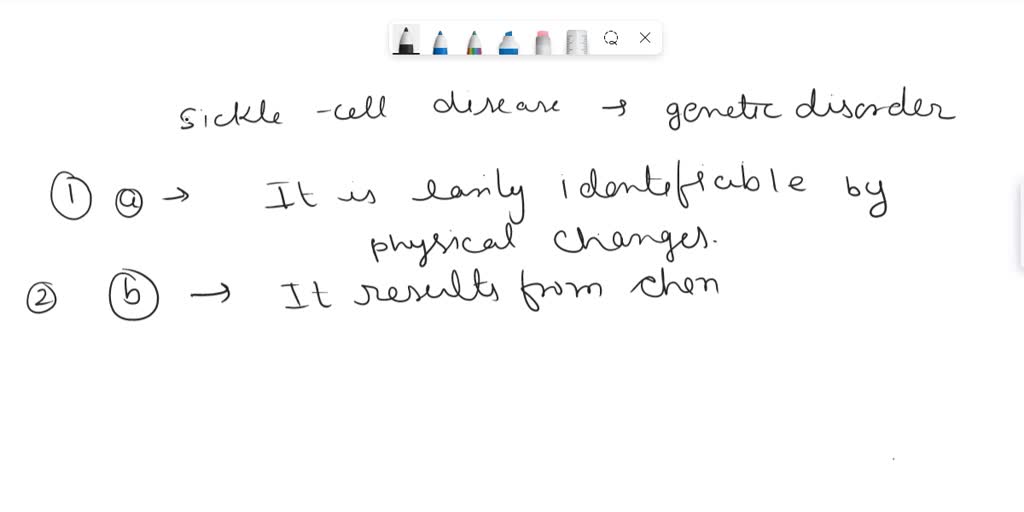 Sickle -cell disease → genetic disorder
① ⓐ → It is easily identifiable by
physical changes.
② ⓑ → It results from chan